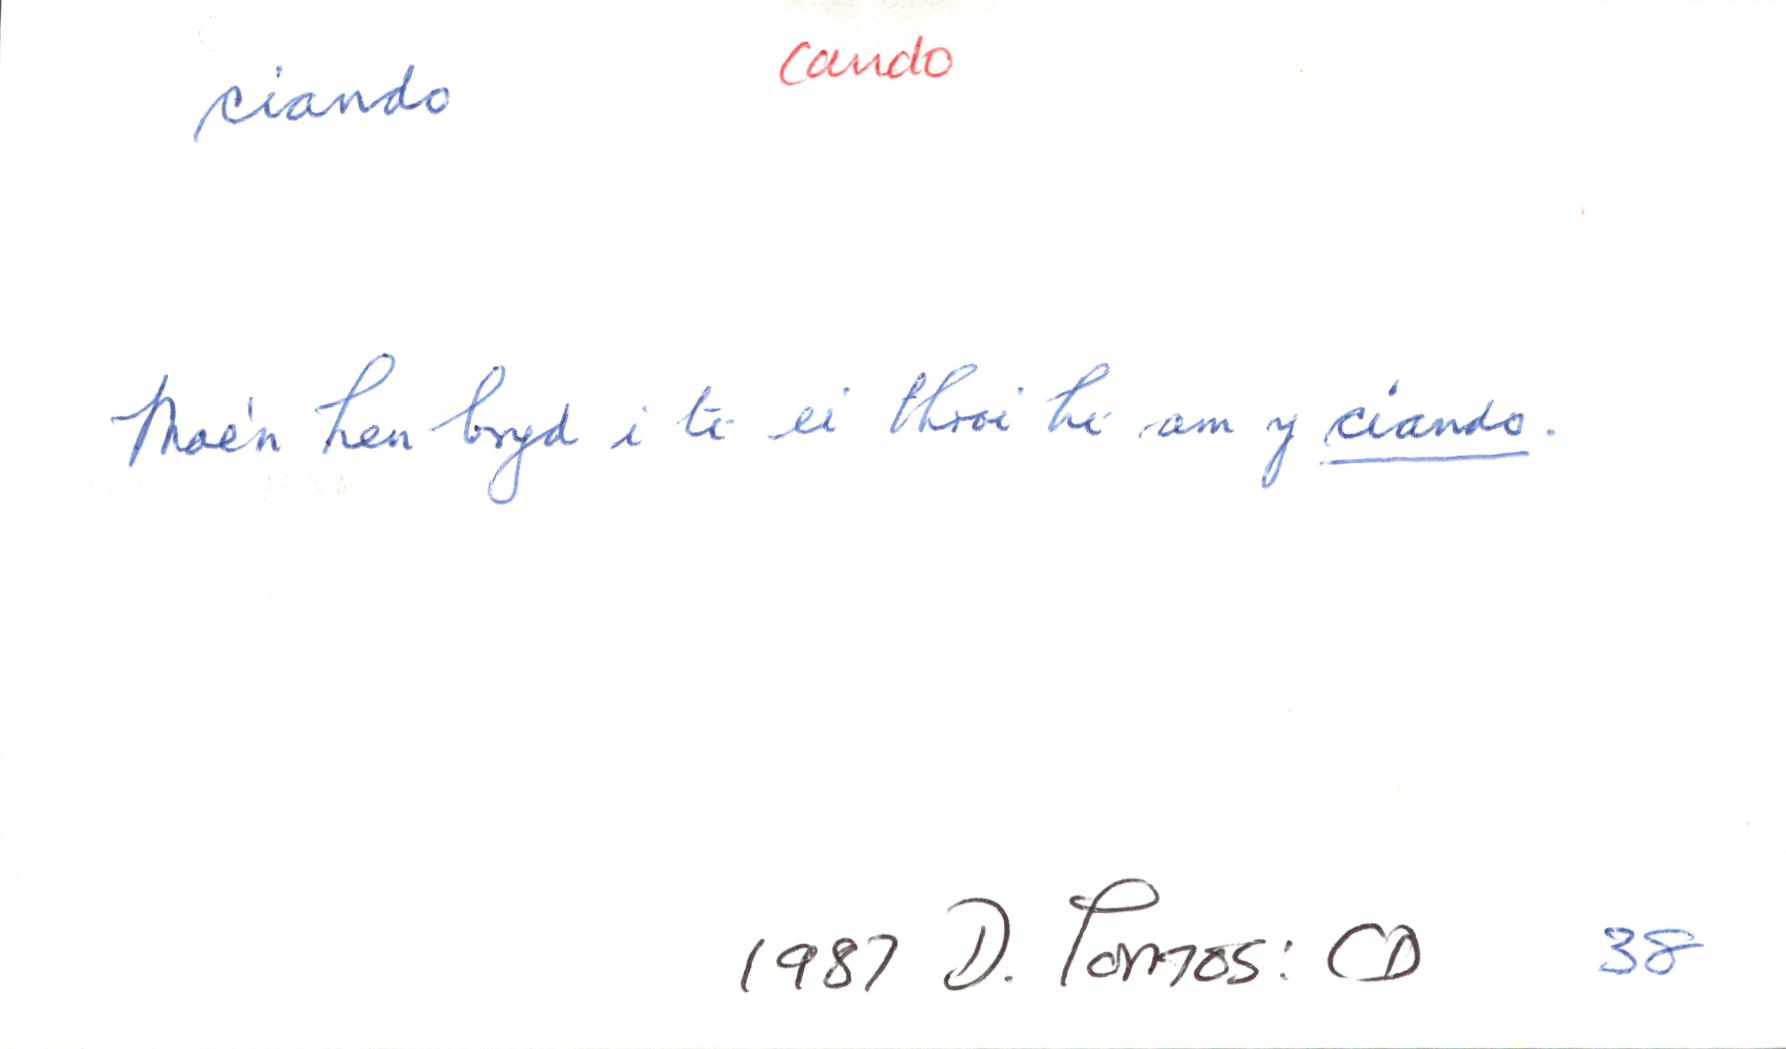 ciando
cando
Mae'n hen bryd i ti ei throi hi am y ciando.
1987 D. Tomos: CD 38